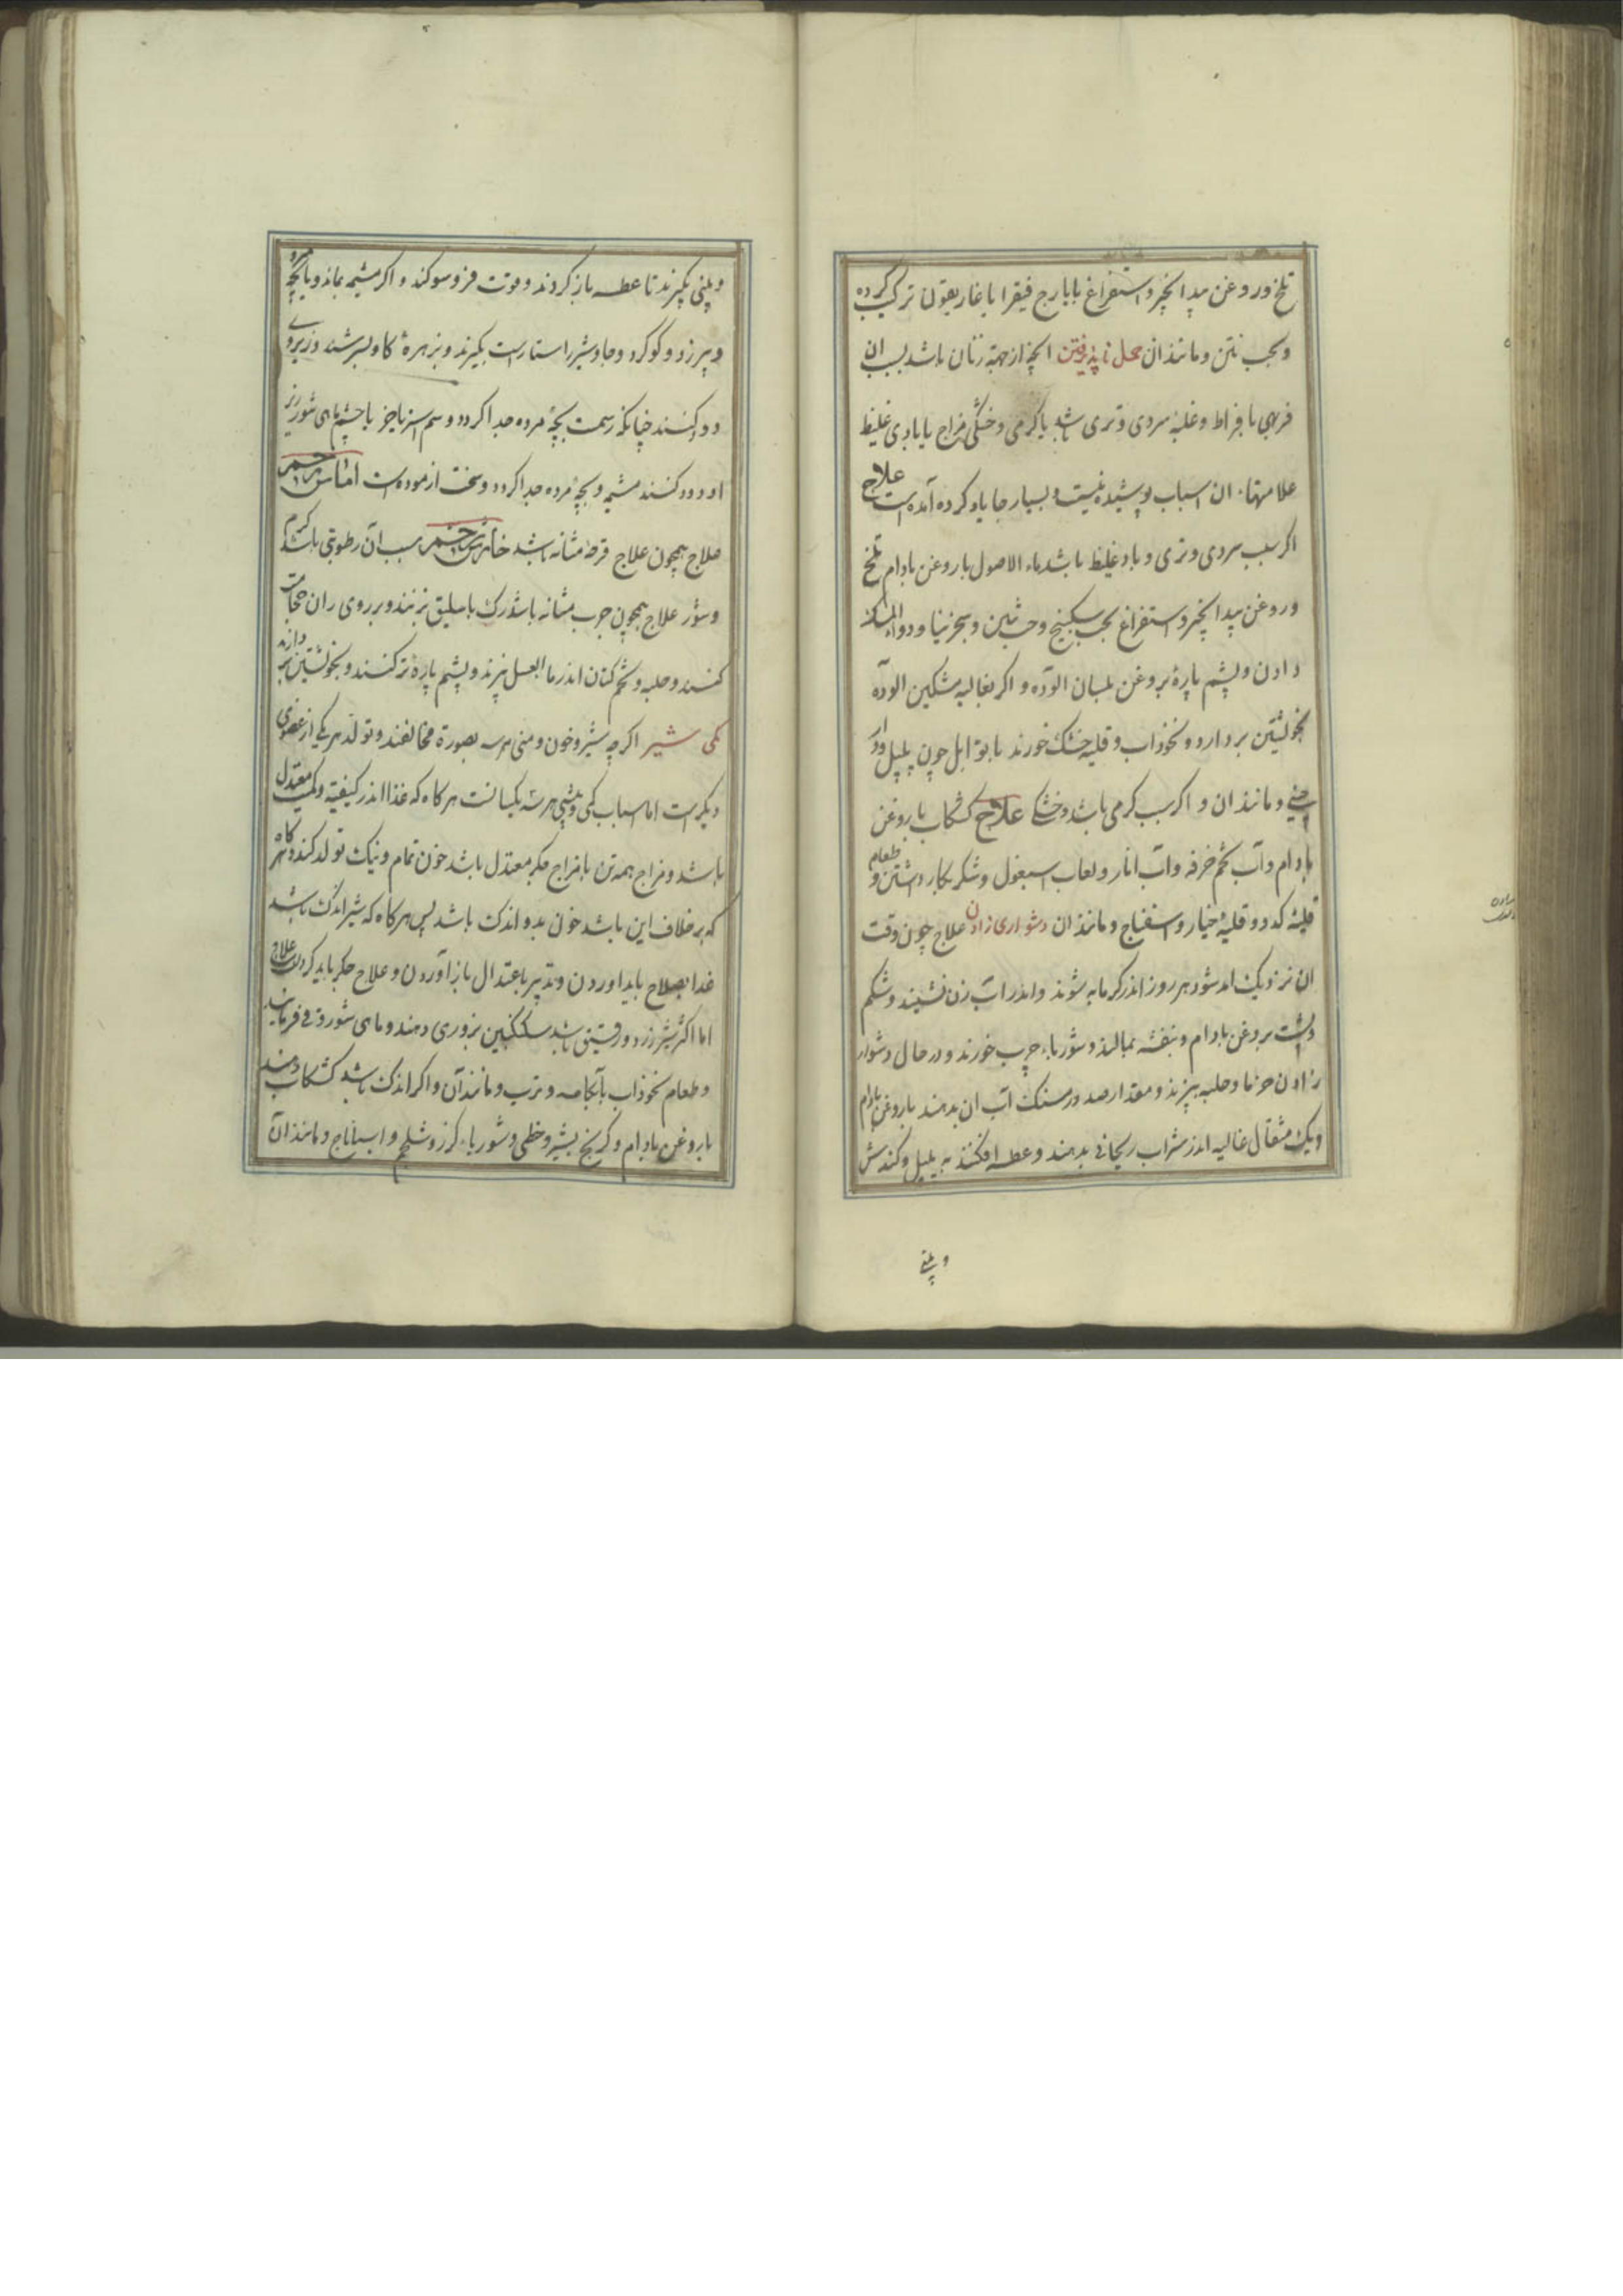 تلخ و روغن بیدانجیر و استفراغ بایارج فیقرا با غاریقون ترکیب کرده
و بحب نتن و مانند ان حمل ناپذیرفتن انچه از جهة زنان باشد سبب ان
فربهی بافراط و غلبهٔ سردی و تری باشد یا کرمی و خشکی مزاج یا بادی غلیظ
علامتهاء ان اسباب پوشیده نیست و بسیار جا یاد کرده آمده است علاج
اکر سبب سردی و تری و باد غلیظ باشد ماء الاصول با روغن بادام تلخ
و روغن بیدانجیر و استفراغ بحب سکبینج و حب نتن و سجزنیا و دواء المسک
دادن و پشم پارهٔ بروغن بلسان الوده و اکر بغالیه مشکین الوده
بخویشتن بردارد و نخوذاب و قلیه خشک خورند با توابل چون پلپل و دار
چینی و مانند ان و اکر سبب کرمی باشد و خشکی علاج کشکاب با روغن
بادام و آب تخم خرفه و آب انار و لعاب اسبغول و شکر بکار داشتن و طعام
قلیهٔ کدو و قلیهٔ خیار و اسفناج و مانند ان دشواری زادن علاج چون وقت
ان نزدیک اید شود هر روز اندر کرمابه شوند و اندر آب زن نشینند و شکم
و پشت بروغن بادام و بنفشه بمالند و شورباء چرب خورند و در حال دشوار
زادن خرما و حلبه بپزند و مقدار صد درمسنک آب ان بدهند با روغن بادام
و یک مثقال غالیه اندر شراب ریحانی بدهند و عطسه افکنند به پلپل و کندش
و بینی
و بینی بکیرند تا عطسه باز کردند و قوت فروسو کند و اکر مشیمه بماند و یا بچه مرده
و بیرزد و کوکرد و جاوشیر راستاراست بکیرند و بزهرهٔ کاو بسرشند و زیر وی
دود کنند چنانکه رسمست بچهٔ مرده جدا کردد و سم اسب نیز یا چشم ماهی شور زیر
او دود کنند مشیمه و بچهٔ مرده جدا کردد و سخت ازموده است اماس رحم
علاج همچون علاج قرحهٔ مثانه باشد خارش رحم سبب آن رطوبتی باشد کرم
و شور علاج همچون جرب مثانه باشد رک باسلیق بزنند و بر روی ران حجامت
کنند و حلبه و تخم کتان اندر ما العسل بپزند و پشم پارهٔ تر کنند و بخویشتن بر دارند
کمی شیر اکر چه شیر و خون و منی هر سه بصورة مخالفند و تولد هر یکی از عضوی
دیکرست اما اسباب کمی و بیشی هر سه یکسانست هر کاه که غذا اندر کیفیة و کمیت معتدل
باشد و مزاج همه تن با مزاج جکر معتدل باشد خون تمام و نیک تولد کند و هر کاه
که بر خلاف این باشد خون بد و اندک باشد پس هر کاه که شیر اندک باشد
غذا بصلاح باید اوردن و تدبیر باعتدال بازآوردن و علاج جکر باید کردن علاج
اما اکر شیر زرد و رقیق باشد سکنکبین بزوری دهند و ماهی شور و قی فرمایند
و طعام نخوذاب باآبکامه و ترب و مانند آن و اکر اندک باشد کشکاب دهند
با روغن بادام و کرنج بشیر و خطمی و شورباء کرز و شلجم و اسباناج و مانند آن